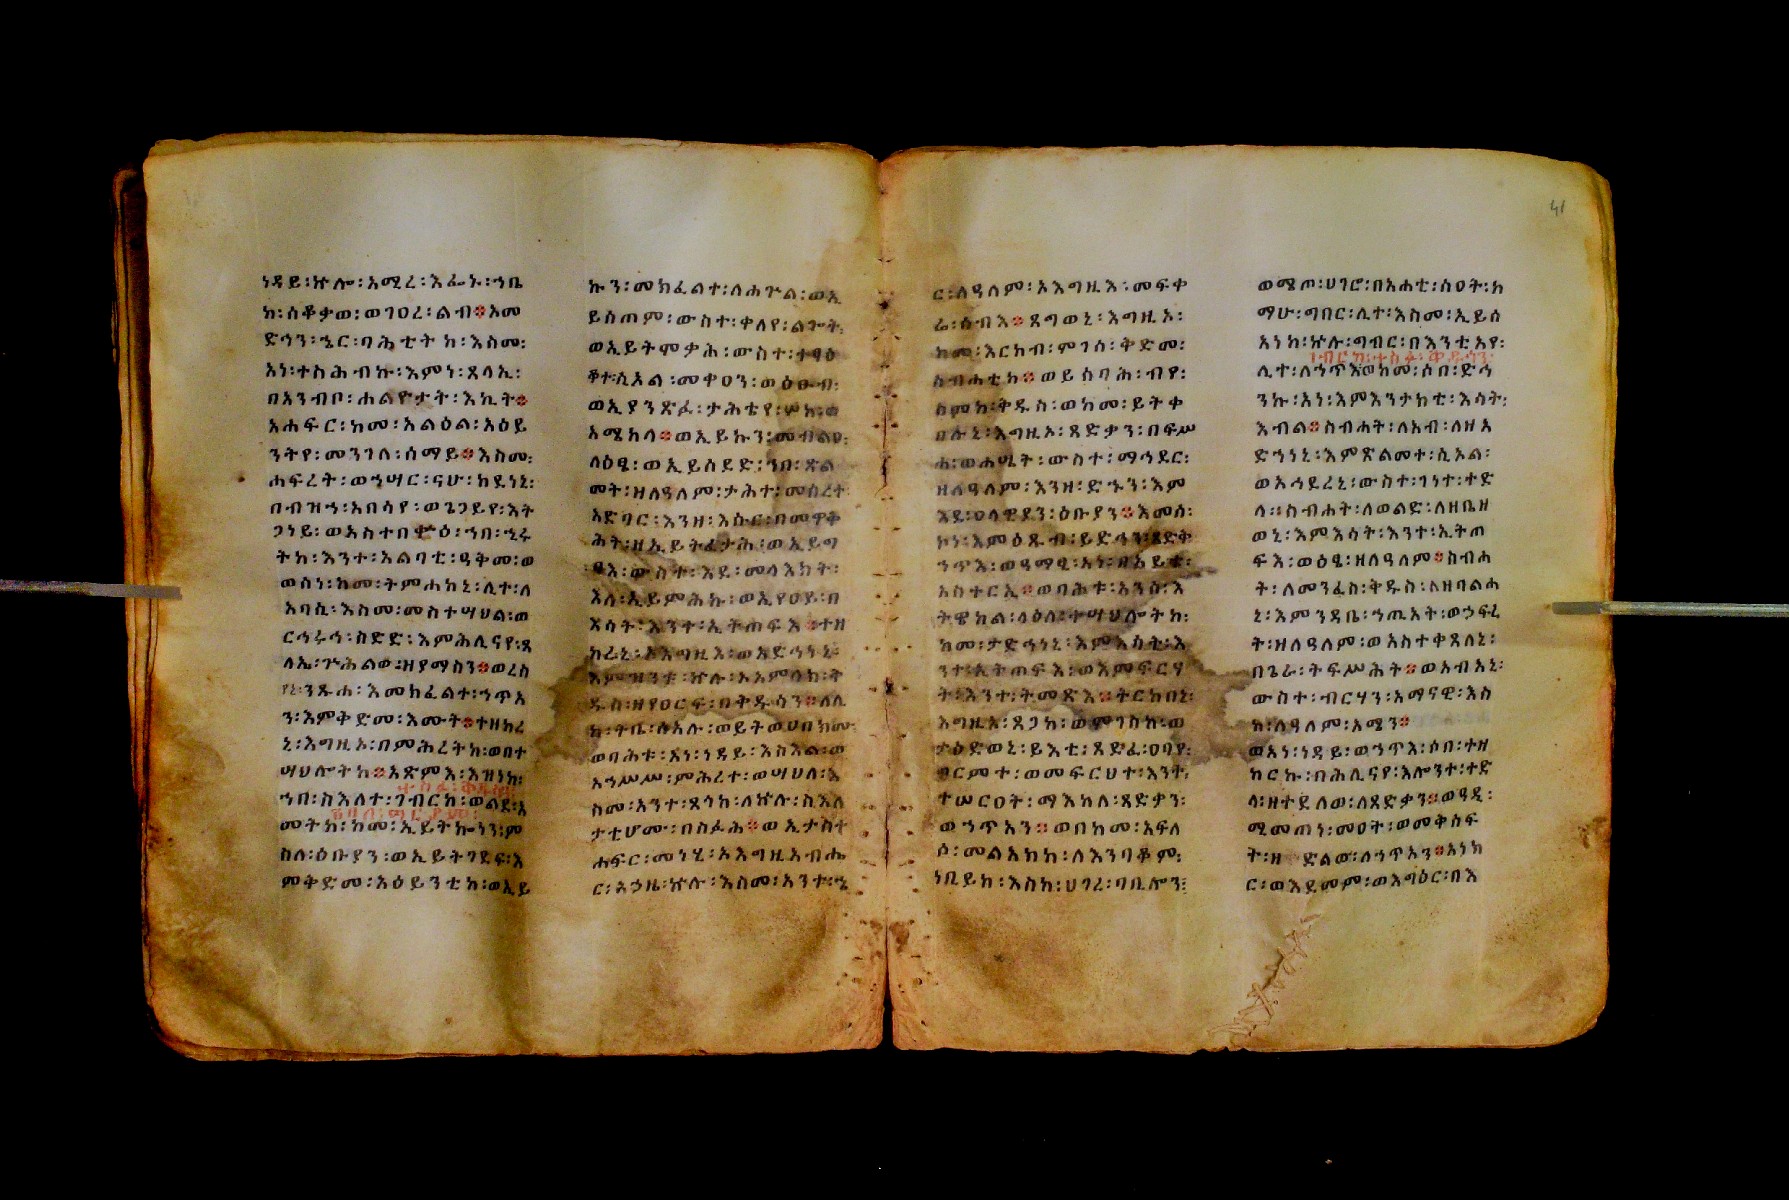 ነዳይ፡ኵሎ፡አሚረ፡እፌኑ፡ኀቤ
ከ፡ሰቆቃወ፡ወገዐረ፡ልብ፨እመ
ድኅን፡ኄር፡ባሕቲትከ፡እስመ፡
አነ፡ተስሕብኩ፡እምነ፡ጸላኢ፡
በአንብቦ፡ሐልዮታት፡እኪት፨
አሐፍር፡ከመ፡አልዕል፡አዕይ
ንትየ፡መንገለ፡ሰማይ፨እስመ፡
ሐፍረት፡ወኀሣር፡ናሁ፡ከደነኒ፡
በብዝኀ፡አበሳየ፡ወጌጋይየ፡እት
ጋነይ፡ወአስተበቍዕ፡ኀበ፡ኂሩ
ትከ፡እንተ፡አልባቲ፡ዓቅመ፡ወ
ወሰነ፡ከመ፡ትምሐከኒ፡ሊተ፡ለ
አባሲ፡እስመ፡መስተሣህል፡ወ
ርኅሩኅ፡ስድድ፡እምሕሊናየ፡ጸ
ንጹሐ፡እመክፈልተ፡ኀጥአ
ን፡እምቅድመ፡እሙት፨ተዘከረ
ኒ፡እግዚኦ፡በምሕረትከ፡ወበተ
ሣህሎትከ፨አጽምእ፡እዝነከ፡
ኀበ፡ስእለተ፡ገብርከ፡ወልደ፡አ
መትከ፡ከመ፡ኢይትኰነን፡ም
ስለ፡ዕቡያን፡ወኢይትገደፍ፡እ
ምቅድመ፡አዕይንቲከ፡ወኢይ
ኩን፡መክፈልተ፡ለሐጕል፡ወኢ
ይሰጠም፡ውስተ፡ቀላየ፡ልጐት፡
ወኢይትሞቃሕ፡ውስተ፡
ሲኦል፡መቀዐን፡ወዕፁብ፡
ወኢያንጽፉ፡ታሕቴየ፡
አሜከላ፨ወኢይኩን፡መብልዐ፡
ለዕፄ፡ወኢይሰደድ፡ኀበ፡ጽል
መት፡ዘለዓለም፡ታሕተ፡መሰረተ
አድባር፡እንዘ፡እሱር፡በመዋቅ
ሕት፡ዘኢይትፈታሕ፡ወኢይግ
ባእ፡ውስተ፡እደ፡መላእክት፡
እለ፡ኢይምሕኩ፡ወኢየዐይ፡በ
እሳት፡እንተ፡ኢትጠፍእ፨ተዘ
ከረኒ፡ኦእግዚእ፡ወአድኅነኒ፡
እምዝንቱ፡ኵሉ፡ኦአምላክ፡ቅ
ዱስ፡ዘየዐርፍ፡በቅዱሳን፨
ወባሕቱ፡አነ፡ነዳይ፡እስእል፡ወ
አኀሥሥ፡ምሕረተ፡ወሣህለ፡እ
ስመ፡አንተ፡ጸጎከ፡ለኵሉ፡ስእለ
ታቲሆሙ፡በስፋሕ፨ወኢታስተ
ሐፍር፡መነሂ፡ኦእግዚአብሔ
ር፡አኃዜ፡ኵሉ፡እስመ፡አንተ፡
ር፡ለዓለም፡ኦእግዚእ፡መፍቀ
ሬ፡ሰብእ፨ጸግወኒ፡እግዚኦ፡
ከመ፡እርከብ፡ምገሰ፡ቅድመ፡
ስብሐቲከ፨ወይሰባሕ፡ብየ፡
ስምከ፡ቅዱስ፡ወከመ፡ይትቀ
በሉኒ፡እግዚኦ፡ጻድቃን፡በፍሥ
ሐ፡ወሐሤት፡ውስተ፡ማኅደር፡
ዘለዓለም፡እንዘ፡ድኁን፡እም
እደ፡ዐላዊያን፡ዕቡያን፨እመሰ፡
ኮነ፡እምዕጹብ፡ይድኅን፡ጻድቅ
ኃጥእ፡ወዓማፂ፡
አስተርኢ፨ወባሕቱ፡አንሰ፡እ
ትዌከል፡ላዕለ፡ተሣህሎትከ፡
ከመ፡ታድኅነኒ፡እምእሳት፡እ
ንተ፡ኢትጠፍእ፡ወእምፍርሃ
ት፡እንተ፡ትመጽእ፨ትርከበኒ፡
እግዚእ፡ጸጋከ፡ወምገስከ፡ወ
ታዕድወኒ፡ይእቲ፡ጸድፈ፡ዐባየ፡
ግርምተ፡ወመፍርህተ፡እንተ፡
ተሠርዐት፡ማእከለ፡ጻድቃን፡
ወኃጥአን፨ወበከመ፡አፍለ
ሶ፡መልአክከ፡ለእንባቆም፡
ነቢይከ፡እስከ፡ሀገረ፡ባቢሎን፡
ወሜጦ፡ሀገሮ፡በአሐቲ፡ሰዐት፡ከ
ማሁ፡ግበር፡ሊተ፡እስመ፡ኢይሰ
አነከ፡ኵሉ፡ግብር፡በእንቲአየ፡
ሊተ፡ለኃጥእ፡ወከመ፡ሶበ፡ድኅ
ንኩ፡አነ፡እምእንታክቲ፡እሳት፡
እብል፨ስብሐት፡ለአብ፡ለዘአ
ድኀነኒ፡እምጽልመተ፡ሲኦል፡
ወአኅደረኒ፡ውስተ፡ገነተ፡ተድ
ላ፡፡ስብሐት፡ለወልድ፡ለዘቤዘ
ወኒ፡እምእሳት፡እንተ፡ኢትጠ
ፍእ፡ወዕፄ፡ዘለዓለም፨ስብሐ
ት፡ለመንፈስ፡ቅዱስ፡ለዘባልሐ
ኒ፡እምንዳቤ፡ኀጢአት፡ወኃፍረ
ት፡ዘለዓለም፡ወአስተቀጸለኒ፡
በጌራ፡ትፍሥሕት፨ወአብአኒ፡
ውስተ፡ብርሃን፡አማናዊ፡እስ
ከ፡ለዓለም፡አሜን፨
ወአነ፡ነዳይ፡ወኃጥእ፡ሶበ፡ተዘ
ከርኩ፡በሕሊናየ፡እሎንተ፡ተድ
ላ፡ዘተደለወ፡ለጻድቃን፨ወዓዲ፡
ሚመጠነ፡መዐት፡ወመቅሰፍ
ት፡ዘ ድልው፡ለኃጥአን፨አነክ
ር፡ወእደመም፡ወእግዕር፡በእ
41